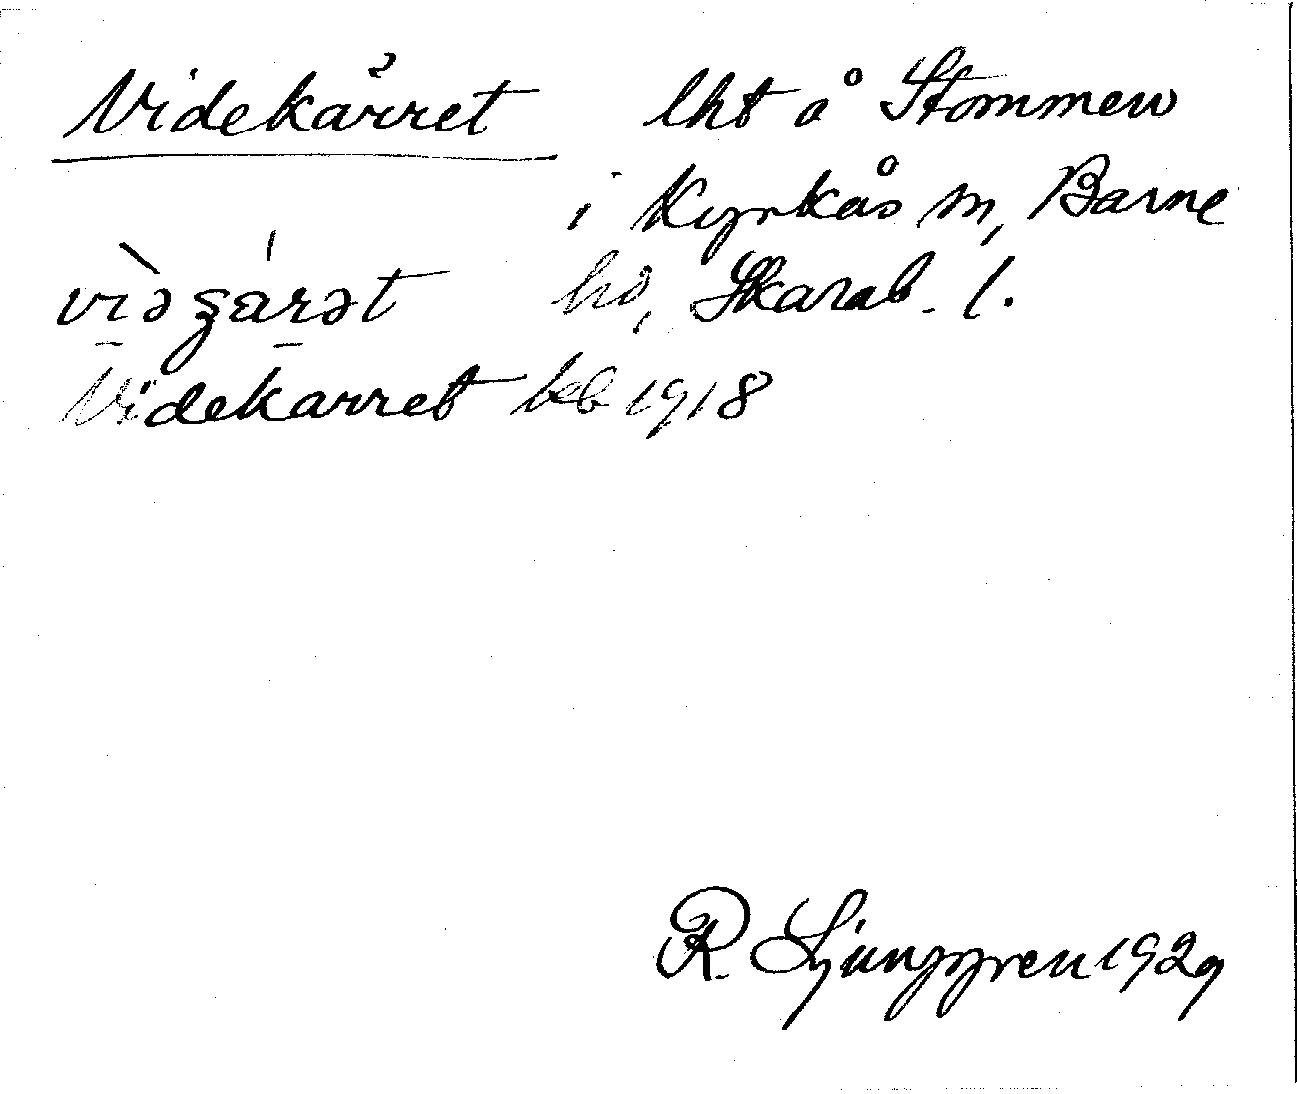 Videkårret lht å Stommen
i Kyrkås sn, Barne
hd, Skarab. l.
vìəʒárət
Videkarret keb 1918
R. Ljunggren 1929